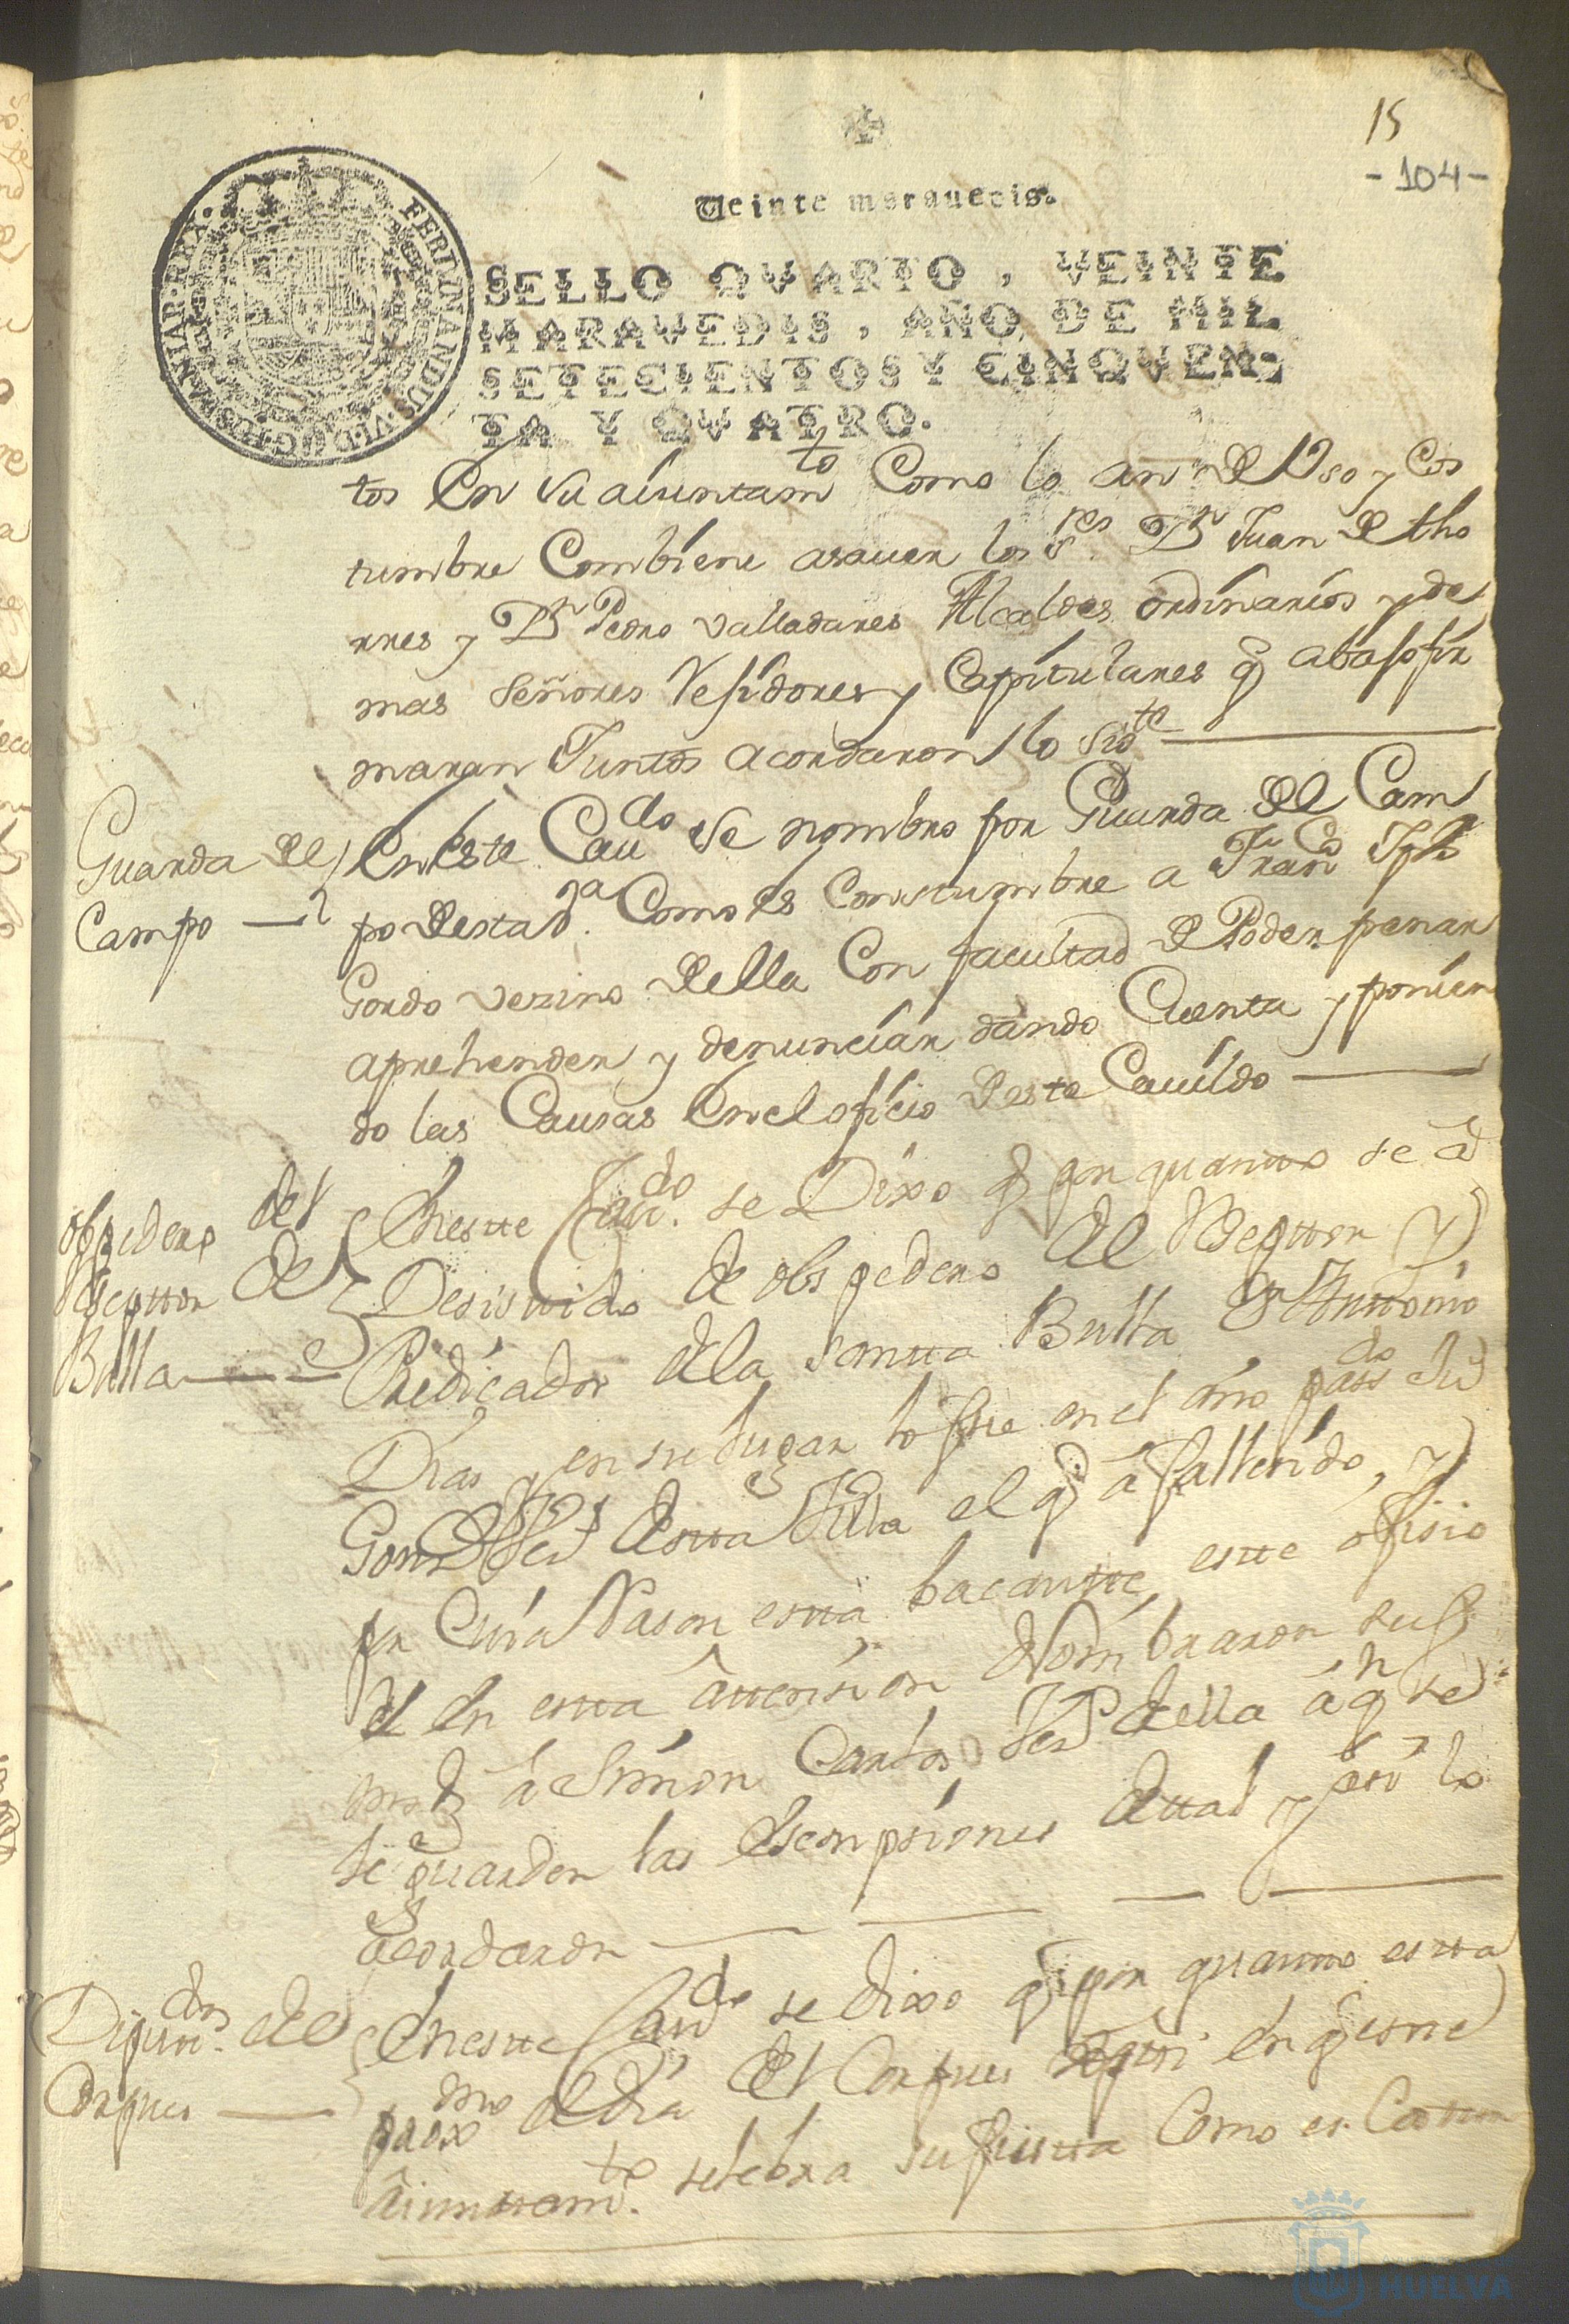 15
-104-
Veinte maravedis.
HISPANIAR·REX· FERDINANDUS·VI·D·G·
SELLO QVARTO, VEINTE
MARAVEDIS, AÑO DE MIL
SETECIENTOS Y CINQVEN-
TA Y QVATRO.
tos En su aiuntamto Como lo an de Uso y Cos
tumbre Combiene asauer los Sres Dn Juan de tho
rres y Dn Pedro Valladares Alcaldes ordinarios y de
mas Señores Residores y Capitulares q abajo fir
maran Juntos acordaron lo sigte
Guarda del
Campo
En Este Caudo se nombro por Guarda del Cam
po desta Va Como es Constumbre a Franco
Gordo vezino della Con facultad de Poder penar
aprehender y denunciar dando Cuenta y ponien
do las Causas En el oficio deste Cauildo
ospedero del
Reseptor de
Bulla
Eneste Caudo se Dixo q por quanto se a
Desistido de ospedero del Reseptor y
Predicador de la Santa Bulla Antonio
Dias y en su lugar lo fue en el año pasdo
desta Villa el q a fallecido, y
por Cuia Rason esta bacante este ofisio
En esta atension Nombraron
a Simon Carlos della a qn se
le guarden las Esempsiones de tal y asi lo
acordaron
Diputdos del
Corpus
Eneste Caudo se dixo q por quanto esta
proximo el dia del Corpus en q este
aiuntamto selebra su fiesta Como es Costum
HUELVA